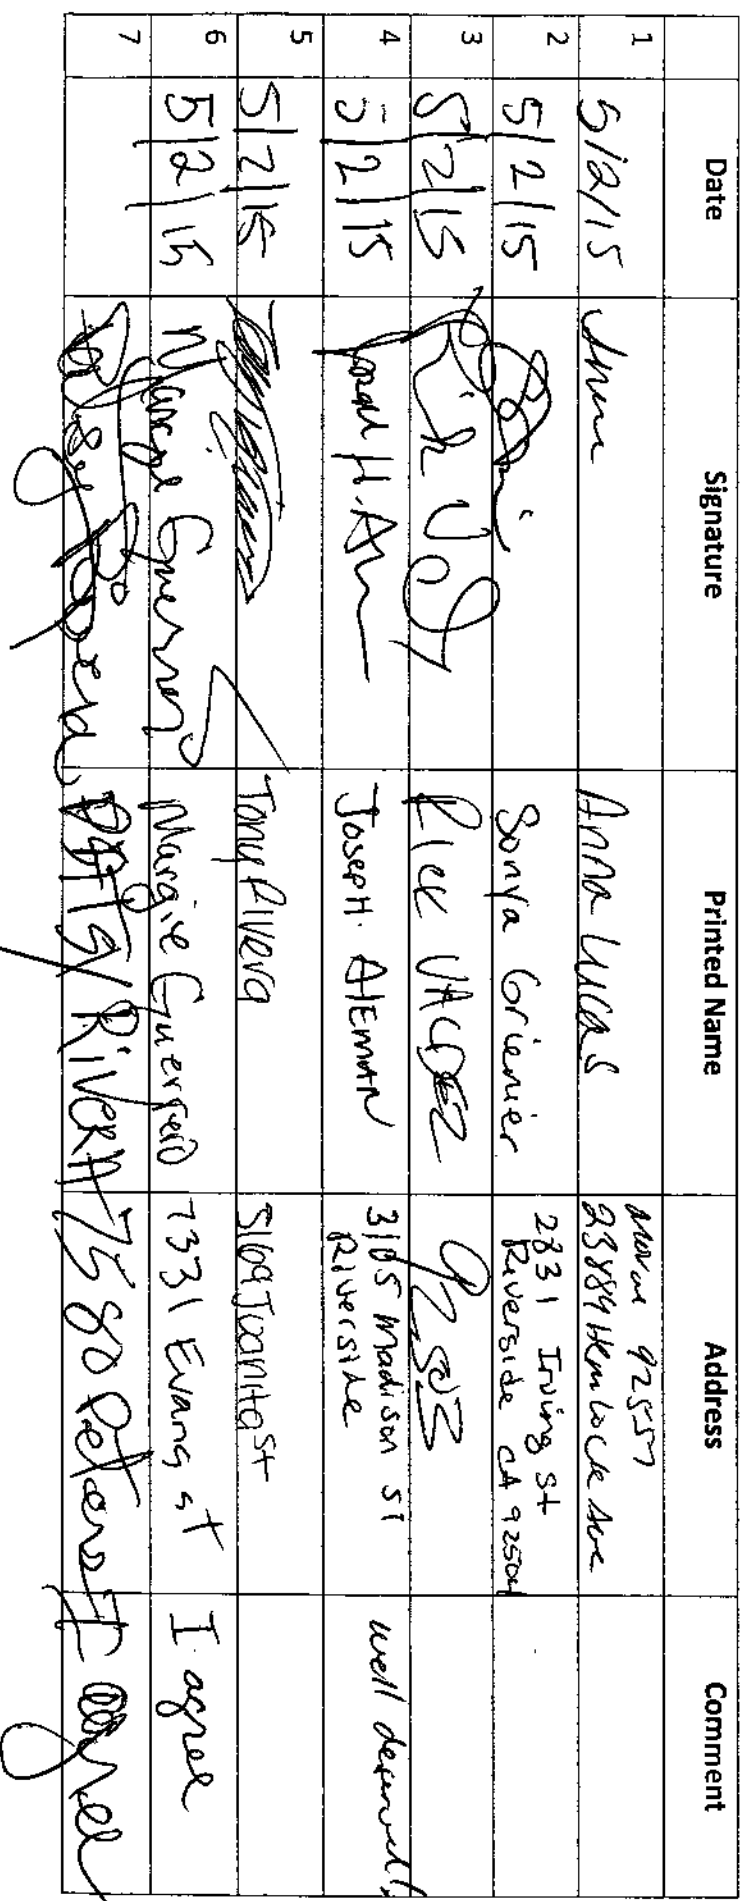 Date Signature Printed Name Address Comment
1 5/2/15 Anna Lucas Moval 92557
23889 Hemlock Ave
2 5/2/15 Sonya Grienier 2831 Irving St
Riverside CA 92504
3 5/2/15 Rick Valdez 92503
4 5/2/15 Joseph H. Aleman 3105 Madison St
Riverside well deserved!
5 5/2/15 Tony Rivera 5169 Juanita St
6 5/2/15 Margie Guerrero Margie Guerrero 7331 Evans st I agree
7 Patsy Rivera 7580 Peters I agree